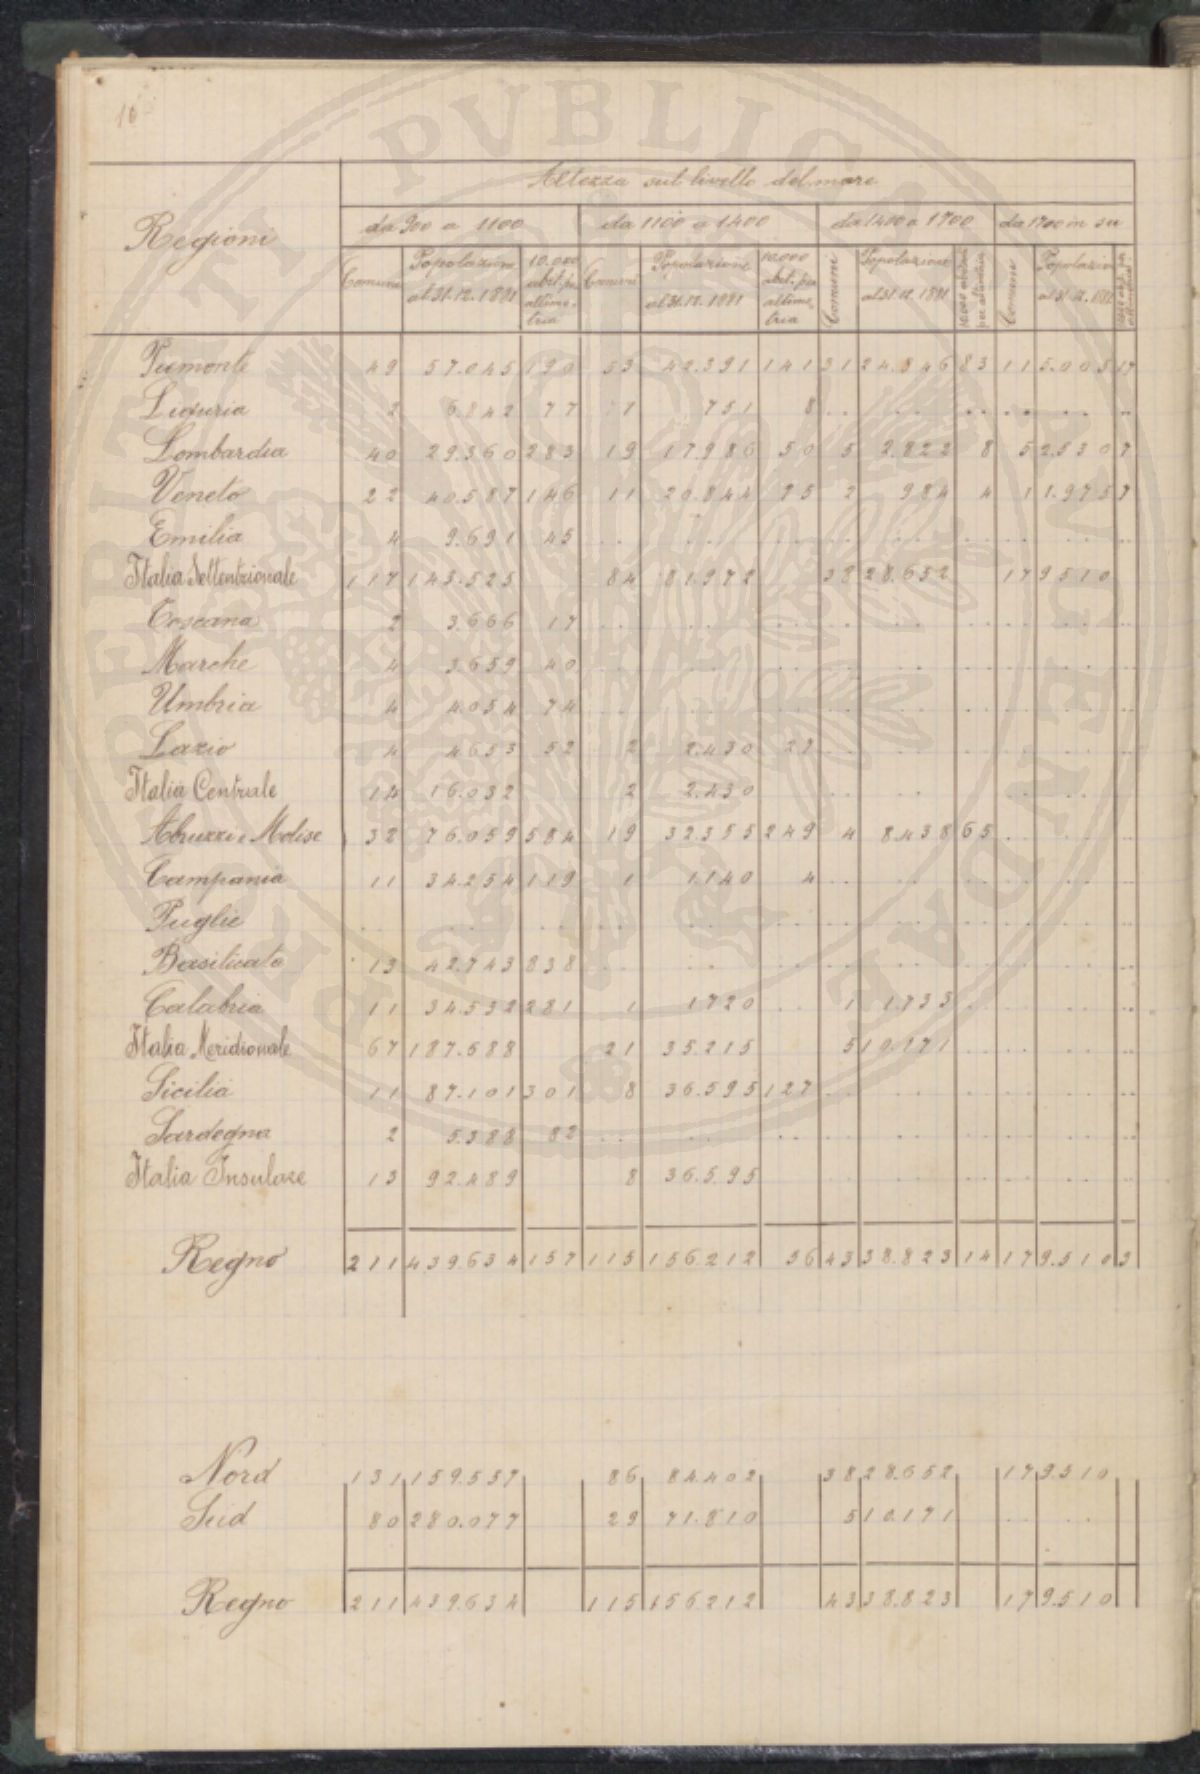 16
Altezza sul livello del mare
Regioni
da 900 a 1100 da 1100 a 1400 da 1400 a 1700 da 1700 in su
Comuni Popolazione al 31.12.1881 10.000 abit. per altimetria Comuni Popolazione al 31.12.1881 10.000 abit. per altimetria Comuni Popolazione al 31.12.1881 10.000 abitanti per altimetria Comuni Popolazione al 31.12.1881
Piemonte 49 57.045 190 53 42.391 141 31 24.846 83 11 5.005 17
Liguria 2 6.842 77 1 751 8 .. .. .. .. .. ..
Lombardia 40 29.360 283 19 17.986 50 5 2.822 8 5 2.530 7
Veneto 22 40.587 146 11 20.844 75 2 984 4 1 1.975 7
Emilia 4 9.691 45 .. .. .. .. .. .. .. .. ..
Italia Settentrionale 117 143.525 84 81.972 38 28.652 17 9.510
Toscana 2 3.666 17 .. .. .. .. .. .. .. .. ..
Marche 4 3.659 40 .. .. .. .. .. .. .. .. ..
Umbria 4 4.054 74 .. .. .. .. .. .. .. .. ..
Lazio 4 4653 52 2 2.430 27 .. .. .. .. .. ..
Italia Centrale 14 16.032 2 2.430 .. .. .. .. .. ..
Abruzzi e Molise 32 76.059 584 19 32.355 249 4 8.438 65 .. .. ..
Campania 11 34.254 119 1 1.140 4 .. .. .. .. .. ..
Puglie .. .. .. .. .. .. .. .. .. .. .. ..
Basilicata 13 42.743 838 .. .. .. .. .. .. .. .. ..
Calabria 11 34.532 281 1 1720 .. 1 1.733 .. .. .. ..
Italia Meridionale 67 187.588 21 35.215 5 10.171 .. .. .. ..
Sicilia 11 87.101 301 8 36.595 127 .. .. .. .. .. ..
Sardegna 2 5.388 82 .. .. .. .. .. .. .. .. ..
Italia Insulare 13 92.489 8 36.595 .. .. .. .. .. ..
Regno 211 439.634 157 115 156.212 56 43 38.823 14 17 9.510 3
Nord 131 159.557 86 84.402 38 28.652 17 9.510
Sud 80 280.077 29 71.810 5 10.171 .. ..
Regno 211 439.634 115 156.212 43 38.823 17 9.510